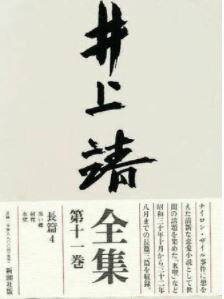 井上靖
ナイロン・ザイル事件に想を
えた清新な恋愛小説として世
間の話題を集めた「氷壁」など
昭和三十年十月から三十二年
八月までの長篇三篇を収録。
全集
第十一巻
長篇4
黒い蝶
射程
氷壁
新潮社版